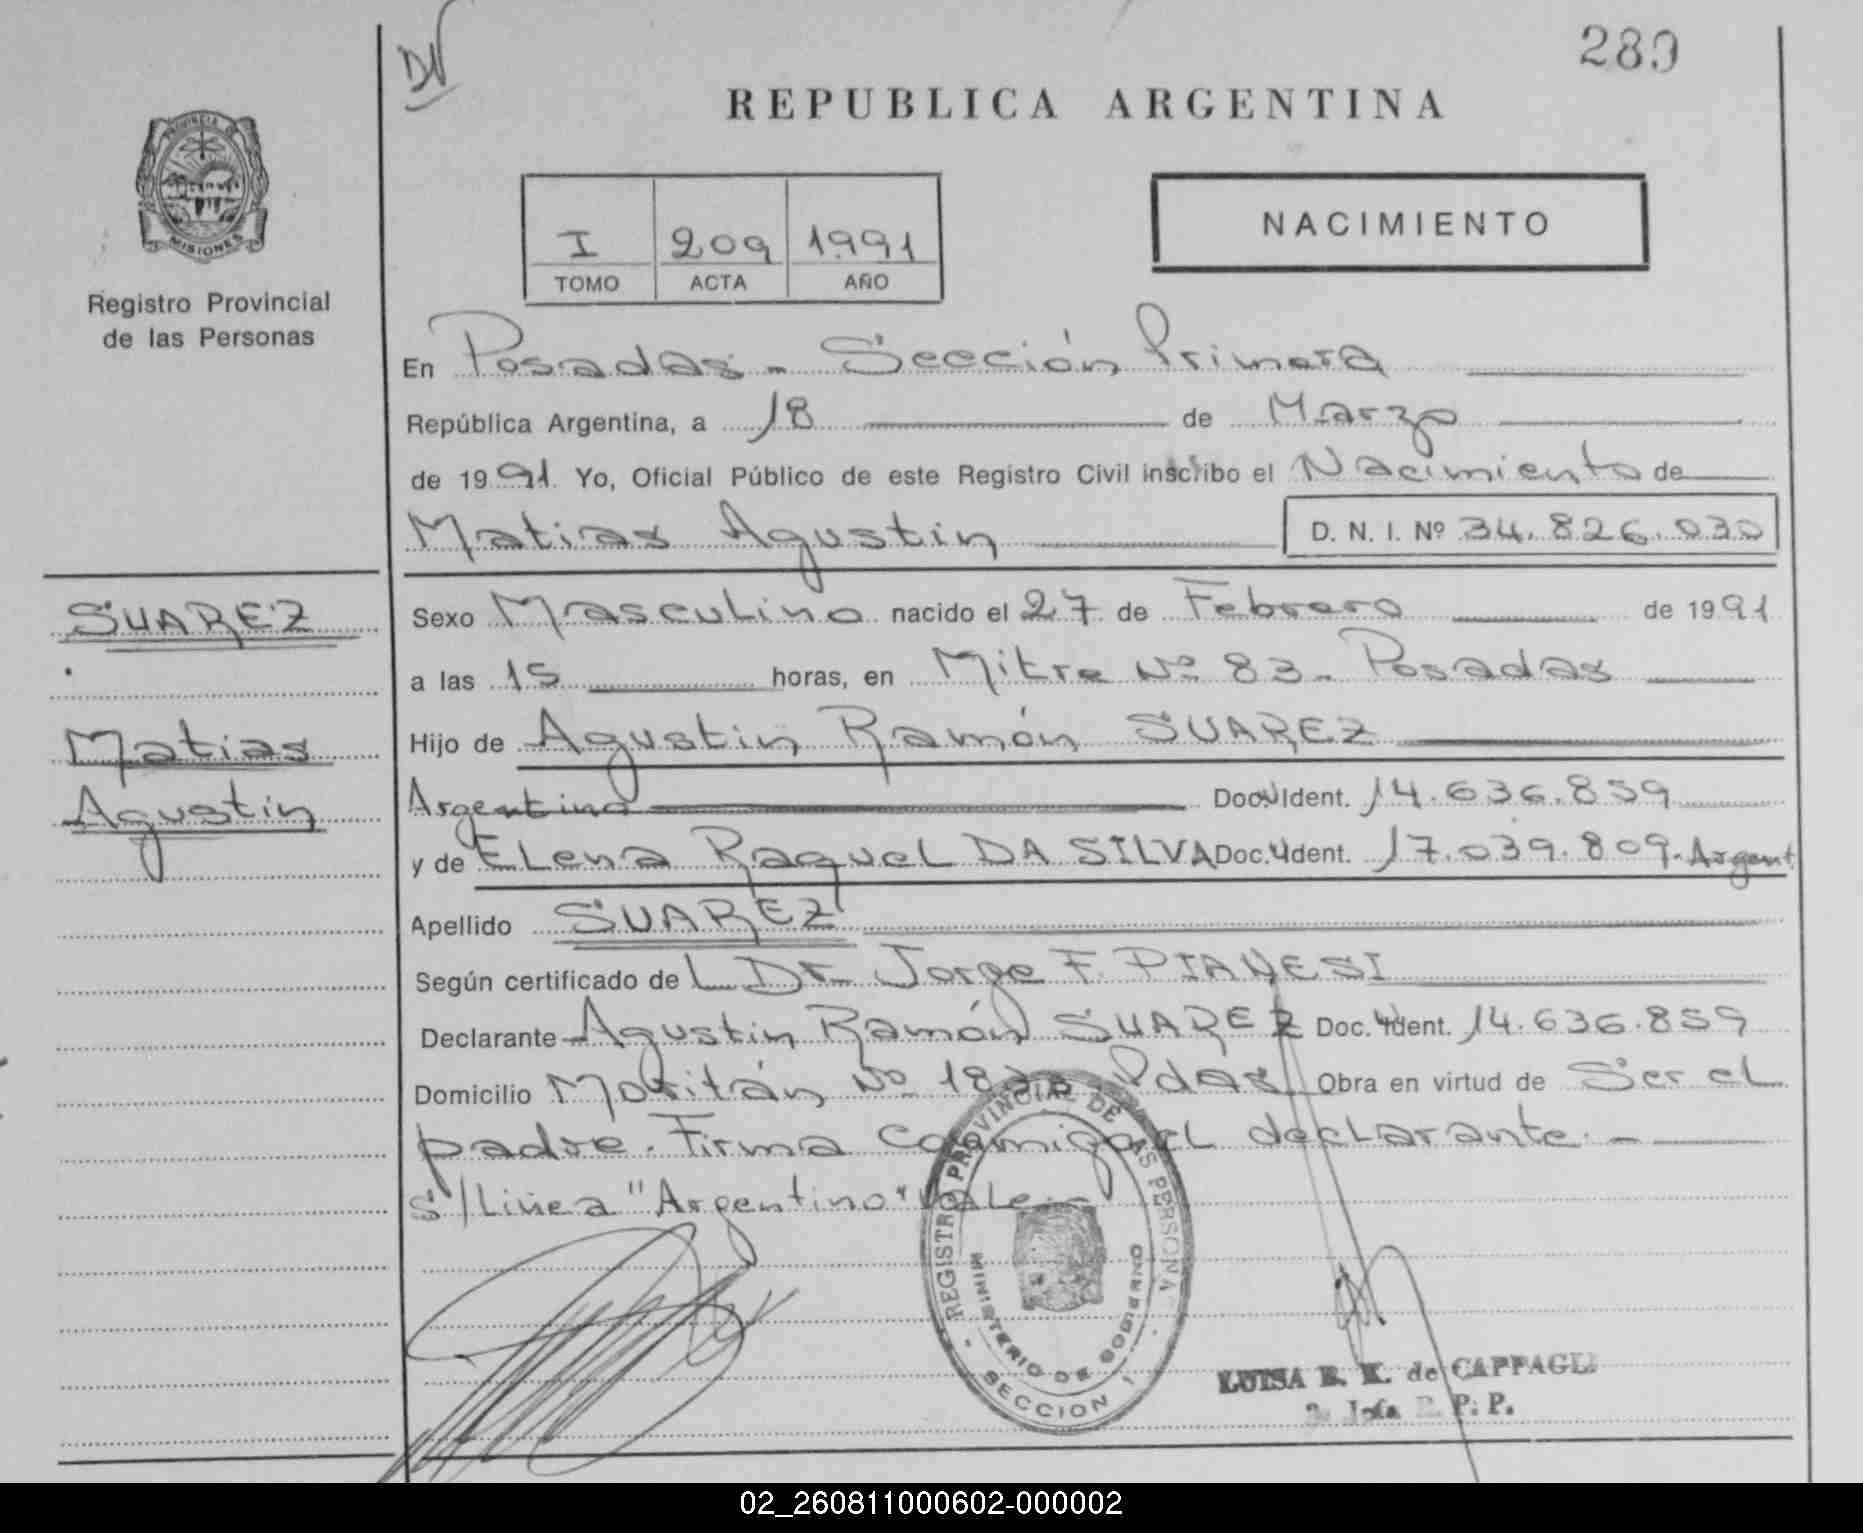 DN
289
REPUBLICA ARGENTINA
PROVINCIA DE MISIONES
Registro Provincial
de las Personas
I 209 1991
TOMO ACTA AÑO
NACIMIENTO
En Posadas - Sección Primera
República Argentina, a 18 de Marzo
de 1991 Yo, Oficial Público de este Registro Civil inscribo el Nacimiento de
Matias Agustin D. N. I. Nº 34.826.030
SUAREZ
Matias
Agustin
Sexo Masculino nacido el 27 de Febrero de 1991
a las 15 horas, en Mitre Nº 83 - Posadas
Hijo de Agustin Ramón SUAREZ
Argentino Doc. Ident. 14.636.859
y de Elena Raquel DA SILVA Doc. Ident. 17.039.809. Argent
Apellido SUAREZ
Según certificado de L Dr. Jorge F. PIANESI
Declarante Agustin Ramón SUAREZ Doc. Ident. 14.636.859
Domicilio Nº Pdas Obra en virtud de Ser el
padre. Firma conmigo el declarante. -
s/Linea "Argentino" Vale. -
REGISTRO PROVINCIAL DE LAS PERSONAS
MINISTERIO DE GOBIERNO
SECCION 1
LUISA de CAPPAGLI
Jefa R. P. P.
02_260811000602-000002